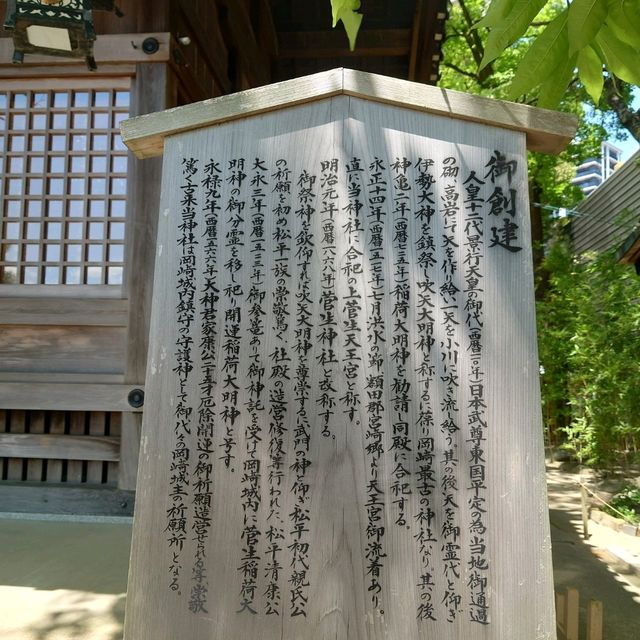 御創建
人皇十二代景行天皇の御代(西暦一一〇年)日本武尊東国平定の為、当地御通過
の砌、高岩にて矢を作り給い、一矢を小川に吹き流し給う。其の後矢を御霊代と仰ぎ
伊勢大神を鎮祭し吹矢大明神と称するに蘇り岡崎最古の神社なり、其の後
神亀二年(西暦七二五年)稲荷大明神を勧請し同殿に合祀する。
永正十四年(西暦一五一七年)七月洪水の節、額田郡宮崎郷より天王宮御流着あり。
直に当神社に合祀の上菅生天王宮と称す。
明治元年(西暦一八六八年)菅生神社と改称する。
御祭神を欽仰すれば吹矢大明神と尊崇する武門の神と仰ぎ、松平初代親氏公
の祈願を初め松平一族の崇敬篤く、社殿の造営修復等行われた、松平清康公
大永三年(西暦一五二三年)御参篭あって御神託を受け岡崎城内に菅生稲荷大
明神の御分霊を移し祀り開運稲荷大明神と号す。
永禄九年(西暦一五六六年)大神君家康公二十五才厄除開運の御祈願造営せられ尊崇敬
篤く古来当神社は岡崎城内鎮守の守護神として御代々岡崎城主祈願所となる。